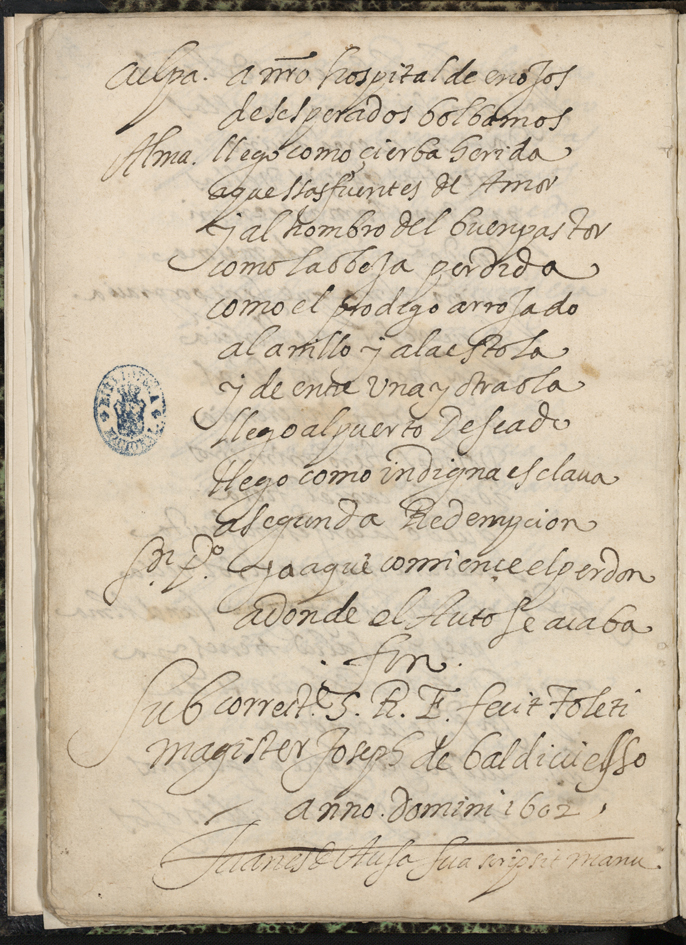 Culpa. a nr̃o hospital de enojos
desesperados bolbamos
Alma. llego como çierba herida
aquellas fuentes del Amor
y al hombro del buen pastor
como la obeja perdida
como el prodigo arrojado
al anillo y a la estola
y de entre una y otra ola
llego al puerto Deseado
llego como indigna esclava
a segunda Redempcion
Sn. P.º ya aqui comience el perdon
adonde el Auto se acaba
. fin .
Sub correct. S. R. E. fecit Toleti
magister Joseph de baldiviesso
anno. domini 1602.
Juanes de sua scripsit manu.
BIBLIOTECA NACIONAL